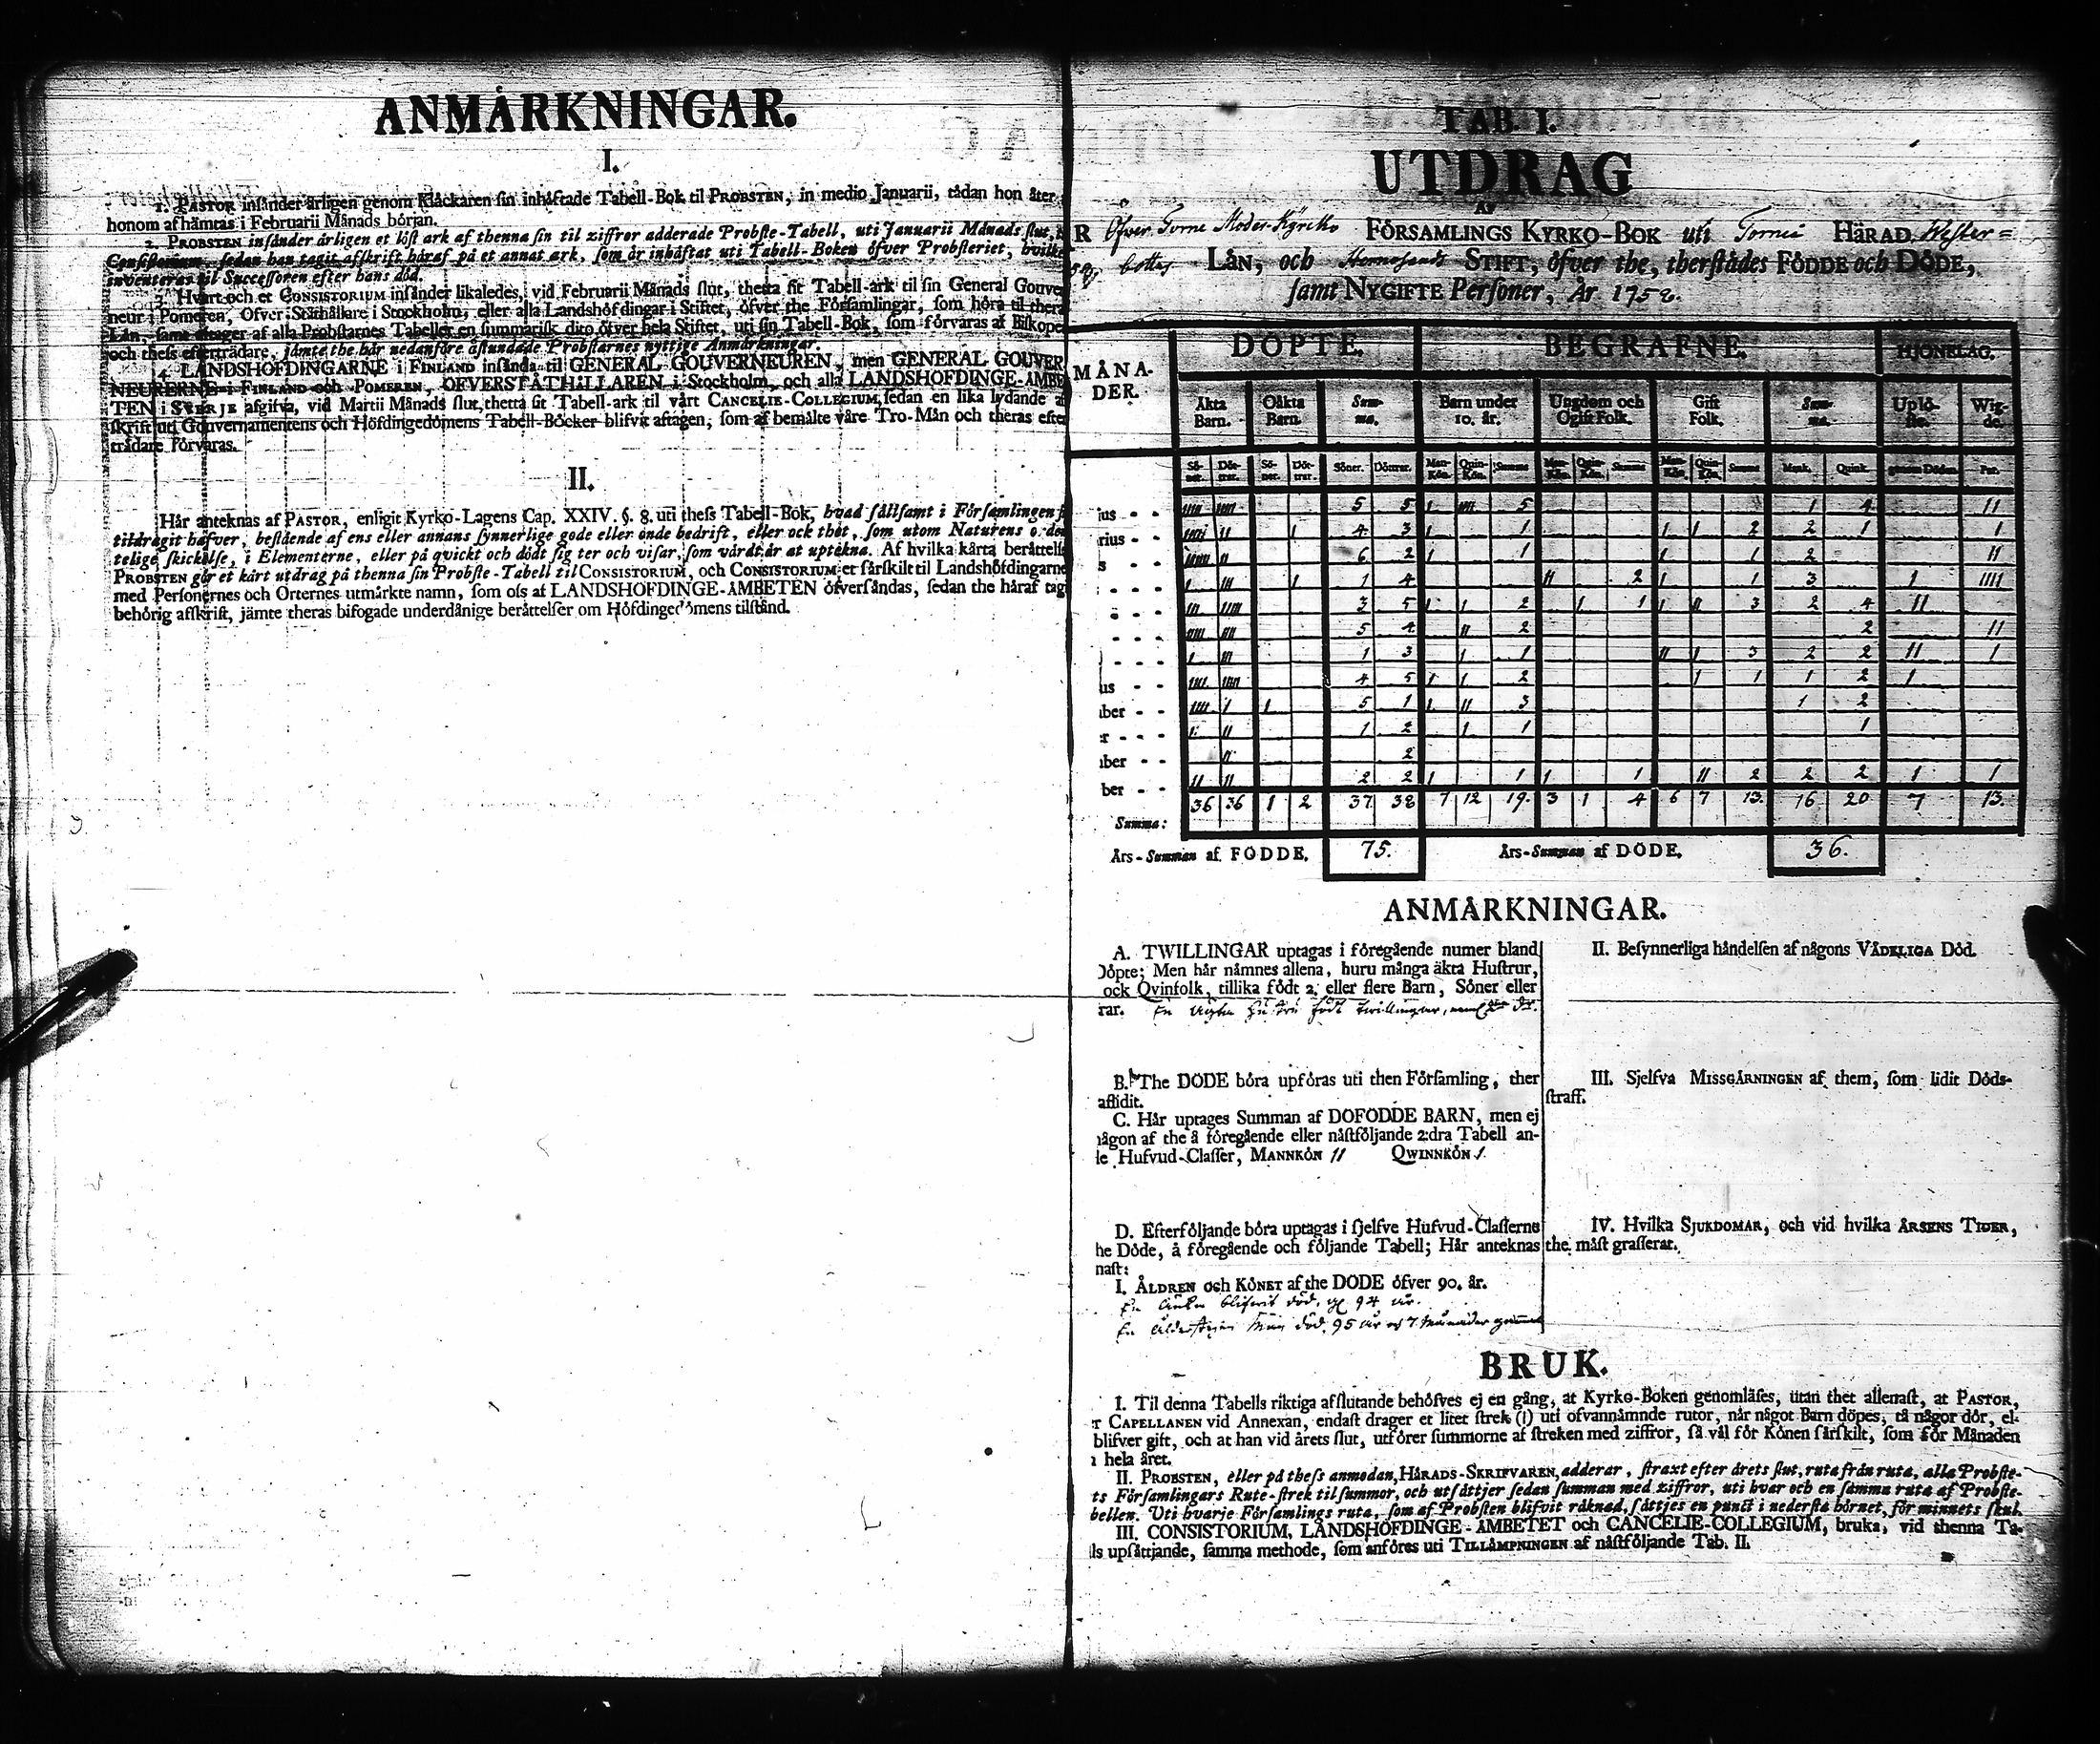 ANMÅRKNINGAR.
I.
1. PASTOR insånder årligen genom Klåckaren sin inhåftade Tabell-Bok til PROBSTEN, in medio Januarii, tådan hon åter
honom afhåmtas i Februarii Månads bórjan.
2. PROBSTEN insånder årligen et lóst ark af thenna sin til ziffror adderade Probste-Tabell, uti Januarii Månads slut,
Consistorium, sedan han tagit afskrift håraf på et annat ark, som år inhåftat uti Tabell-Boken ófver Probsteriet, hvilke
inventeras til Successoren efter hans dód.
3. Hvart och et CONSISTORIUM insånder likaledes, vid Februarii Månads slut, thetta sit Tabell-ark til sin General Gouve
neur i Pomeren, Ofver-Ståthållare i Stockholm, eller alla Landshófdingar i Stiftet, ófver the Fórsamlingar, som hóra til thera
Lån, samt åtager af alla Probstarnes Tabeller en summarisk dito ófver hela Stiftet, uti sin Tabell-Bok, som fórvaras af Biskope
och thess eftertrådare, jåmte the hår nedanfóre åstundade Probstarnes nyttige Anmårkningar.
4. LANDSHOFDINGARNE i FINLAND insånda til GENERAL GOUVERNEUREN, men GENERAL GOUVER
NEURERNE i FINLAND och POMEREN, OFVERSTÅTHÅLLAREN i Stockholm, och alla LANDSHOFDINGE-AMBE
TEN i SVERJE afgifva, vid Martii Månads slut, thetta sit Tabell-ark til vårt CANCELIE-COLLEGIUM, sedan en lika lydande a
skrift uti Gouvernamentens och Hófdingedómens Tabell-Bócker blifvit aftagen; som af bemålte våre Tro-Mån och theras efte
trådare fórvaras.
II.
Hår anteknas af PASTOR, enligit Kyrko-Lagens Cap. XXIV. §. 8. uti thess Tabell-Bok, hvad sållsamt i Fórsamlingen
tildragit håfver, bestående af ens eller annans synnerlige gode eller onde bedrift, eller ock thet, som utom Naturens o-den
telige skickelse, i Elementerne, eller på qvickt och dódt sig ter och visar, som vårdt år at uptekna. Af hvilka kårta beråttelse
PROBSTEN gór et kårt utdrag på thenna sin Probste-Tabell til CONSISTORIUM, och CONSISTORIUM et sårskilt til Landshófdingarne
med Personernes och Orternes utmårkte namn, som oss af LANDSHOFDINGE-AMBETEN ófversåndas, sedan the håraf tag
behórig afskrift, jåmte theras bifogade underdånige beråttelser om Hófdingedómens tilstånd.
TAB. I.
UTDRAG
AF
R Öfver Torne Moder-Kyrko FÓRSAMLINGS KYRKO-BOK uti Torneå HÄRAD, Wester=
bottns LÅN, och Hernösands STIFT, ófver the, therstådes FÓDDE och DÓDE,
samt NYGIFTE Personer, År 1758.
MÅNA-
DER.
DOPTE. BEGRAFNE. HJONELAG.
Äkta Barn. Oåkta Barn. Sum-ma. Barn under 10. år. Ungdom och Ogift Folk. Gift Folk. Sum-ma. Upló-ste. Wig-de.
Só-ner. Dót-trar. Só-ner. Dót-trar. Sóner. Dóttrar. Man-Kón. Quin-Kón. Summa Man-Kón. Quin-Kón. Summa Man-Kón. Quin-Kón. Summa Mank. Quink. genom Dóden Par.
jus - - 5 5 1 1111 5 1 4 11
rius - - 1 4 3 1 1 1 1 2 2 1 1
s - - 6 2 1 1 1 1 2 11
- - - 1 111 1 1 4 11 2 1 1 3 1 1111
- - - 111 11111 3 5 1 1 2 1 1 1 11 3 2 4 11
- - - - 11111 1111 5 4 11 2 2 11
- - - - 1 111 1 3 1 1 11 1 3 2 2 11 1
us - - 1111 11111 4 5 1 1 2 1 1 1 2 1
ber - - 1111 1 1 5 1 1 11 3 1 2
r - - - 1 11 1 2 1 1 1
ber - - 11 2
ber - - 11 11 2 2 1 1 1 1 11 2 2 2 1 1
Summa: 36 36 1 2 37 38 7 12 19. 3 1 4 6 7 13. 16 20 7 13.
Års-Summan af FÓDDE. 75. Års-Summan af DÓDE. 36.
ANMÅRKNINGAR.
A. TWILLINGAR uptagas i fóregående numer bland
Dópte; Men hår nåmnes allena, huru många äkta Hustrur,
ock Qvinfolk, tillika fódt 2, eller flere Barn, Sóner eller
rar. En hustru födt twillingar,
B. The DÓDE bóra upfóras uti then Fórsamling, ther
aflidit.
C. Hår uptages Summan af DOFODDE BARN, men ej
någon af the å fóregående eller nåstfóljande 2:dra Tabell an-
le Hufvud-Classer, MANNKÓN 11 QWINNKÓN 1
D. Efterfóljande bóra uptagas i sjelfve Hufvud-Classerne
he Dóde, å fóregående och fóljande Tabell; Hår anteknas
nast:
I. ÅLDREN och KÓNET af the DODE ófver 90. år.
En Änka blifvit död, 94 år.
En man död, 95 år och 7 månader
II. Besynnerliga håndelsen af någons VÅDELIGA Dód.
III. Sjelfva MISSGÅRNINGEN af them, som lidit Dóds-
straff.
IV. Hvilka SJUKDOMAR, och vid hvilka ÅRSENS TIDER,
the måst grasserat.
BRUK.
I. Til denna Tabells riktiga afslutande behófves ej en gång, at Kyrko-Boken genomlåses, utan thet allenast, at PASTOR,
r CAPELLANEN vid Annexan, endast drager et litet strek (I) uti ofvannåmnde rutor, når något Barn dópes, tå någor dór, el-
blifver gift, och at han vid årets slut, utfórer summorne af streken med ziffror, så vål fór Kónen sårskilt, som fór Månaden
hela året.
II. PROBSTEN, eller på thess anmodan, HÅRADS-SKRIFVAREN, adderar, straxt efter årets slut, ruta från ruta, alla Probste-
ts Fórsamlingars Rute-strek til summor, och utsåttjer sedan summan med ziffror, uti hvar och en samma ruta af Probste-
bellen. Uti hvarje Fórsamlings ruta, som af Probsten blifvit råknad, såttjes en punct i nedersta hórnet, fór minnets skul.
III. CONSISTORIUM, LANDSHÓFDINGE-AMBETET och CANCELIE-COLLEGIUM, bruka, vid thenna Ta-
ls upsåttjande, samma methode, som anfóres uti TILLÅMPNINGEN af nåstfóljande Tab. II.